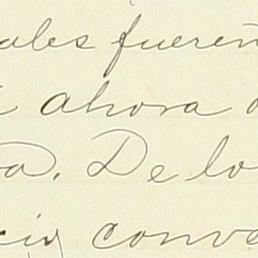 ales fueren
ahora
a. De lo
cia conv